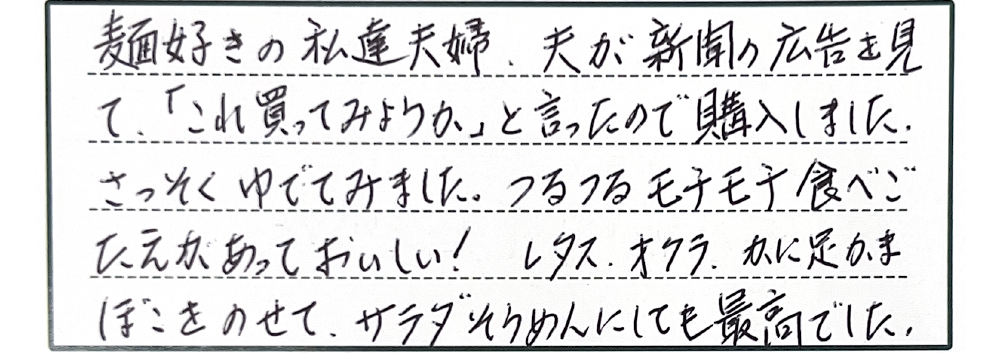 麺好きの私達夫婦、夫が新聞の広告を見
て、「これ買ってみようか」と言ったので購入しました。
さっそくゆでてみました。つるつるモチモチ食べご
たえがあっておいしい！ レタス、オクラ、かに足かま
ぼこをのせて、サラダそうめんにしても最高でした。